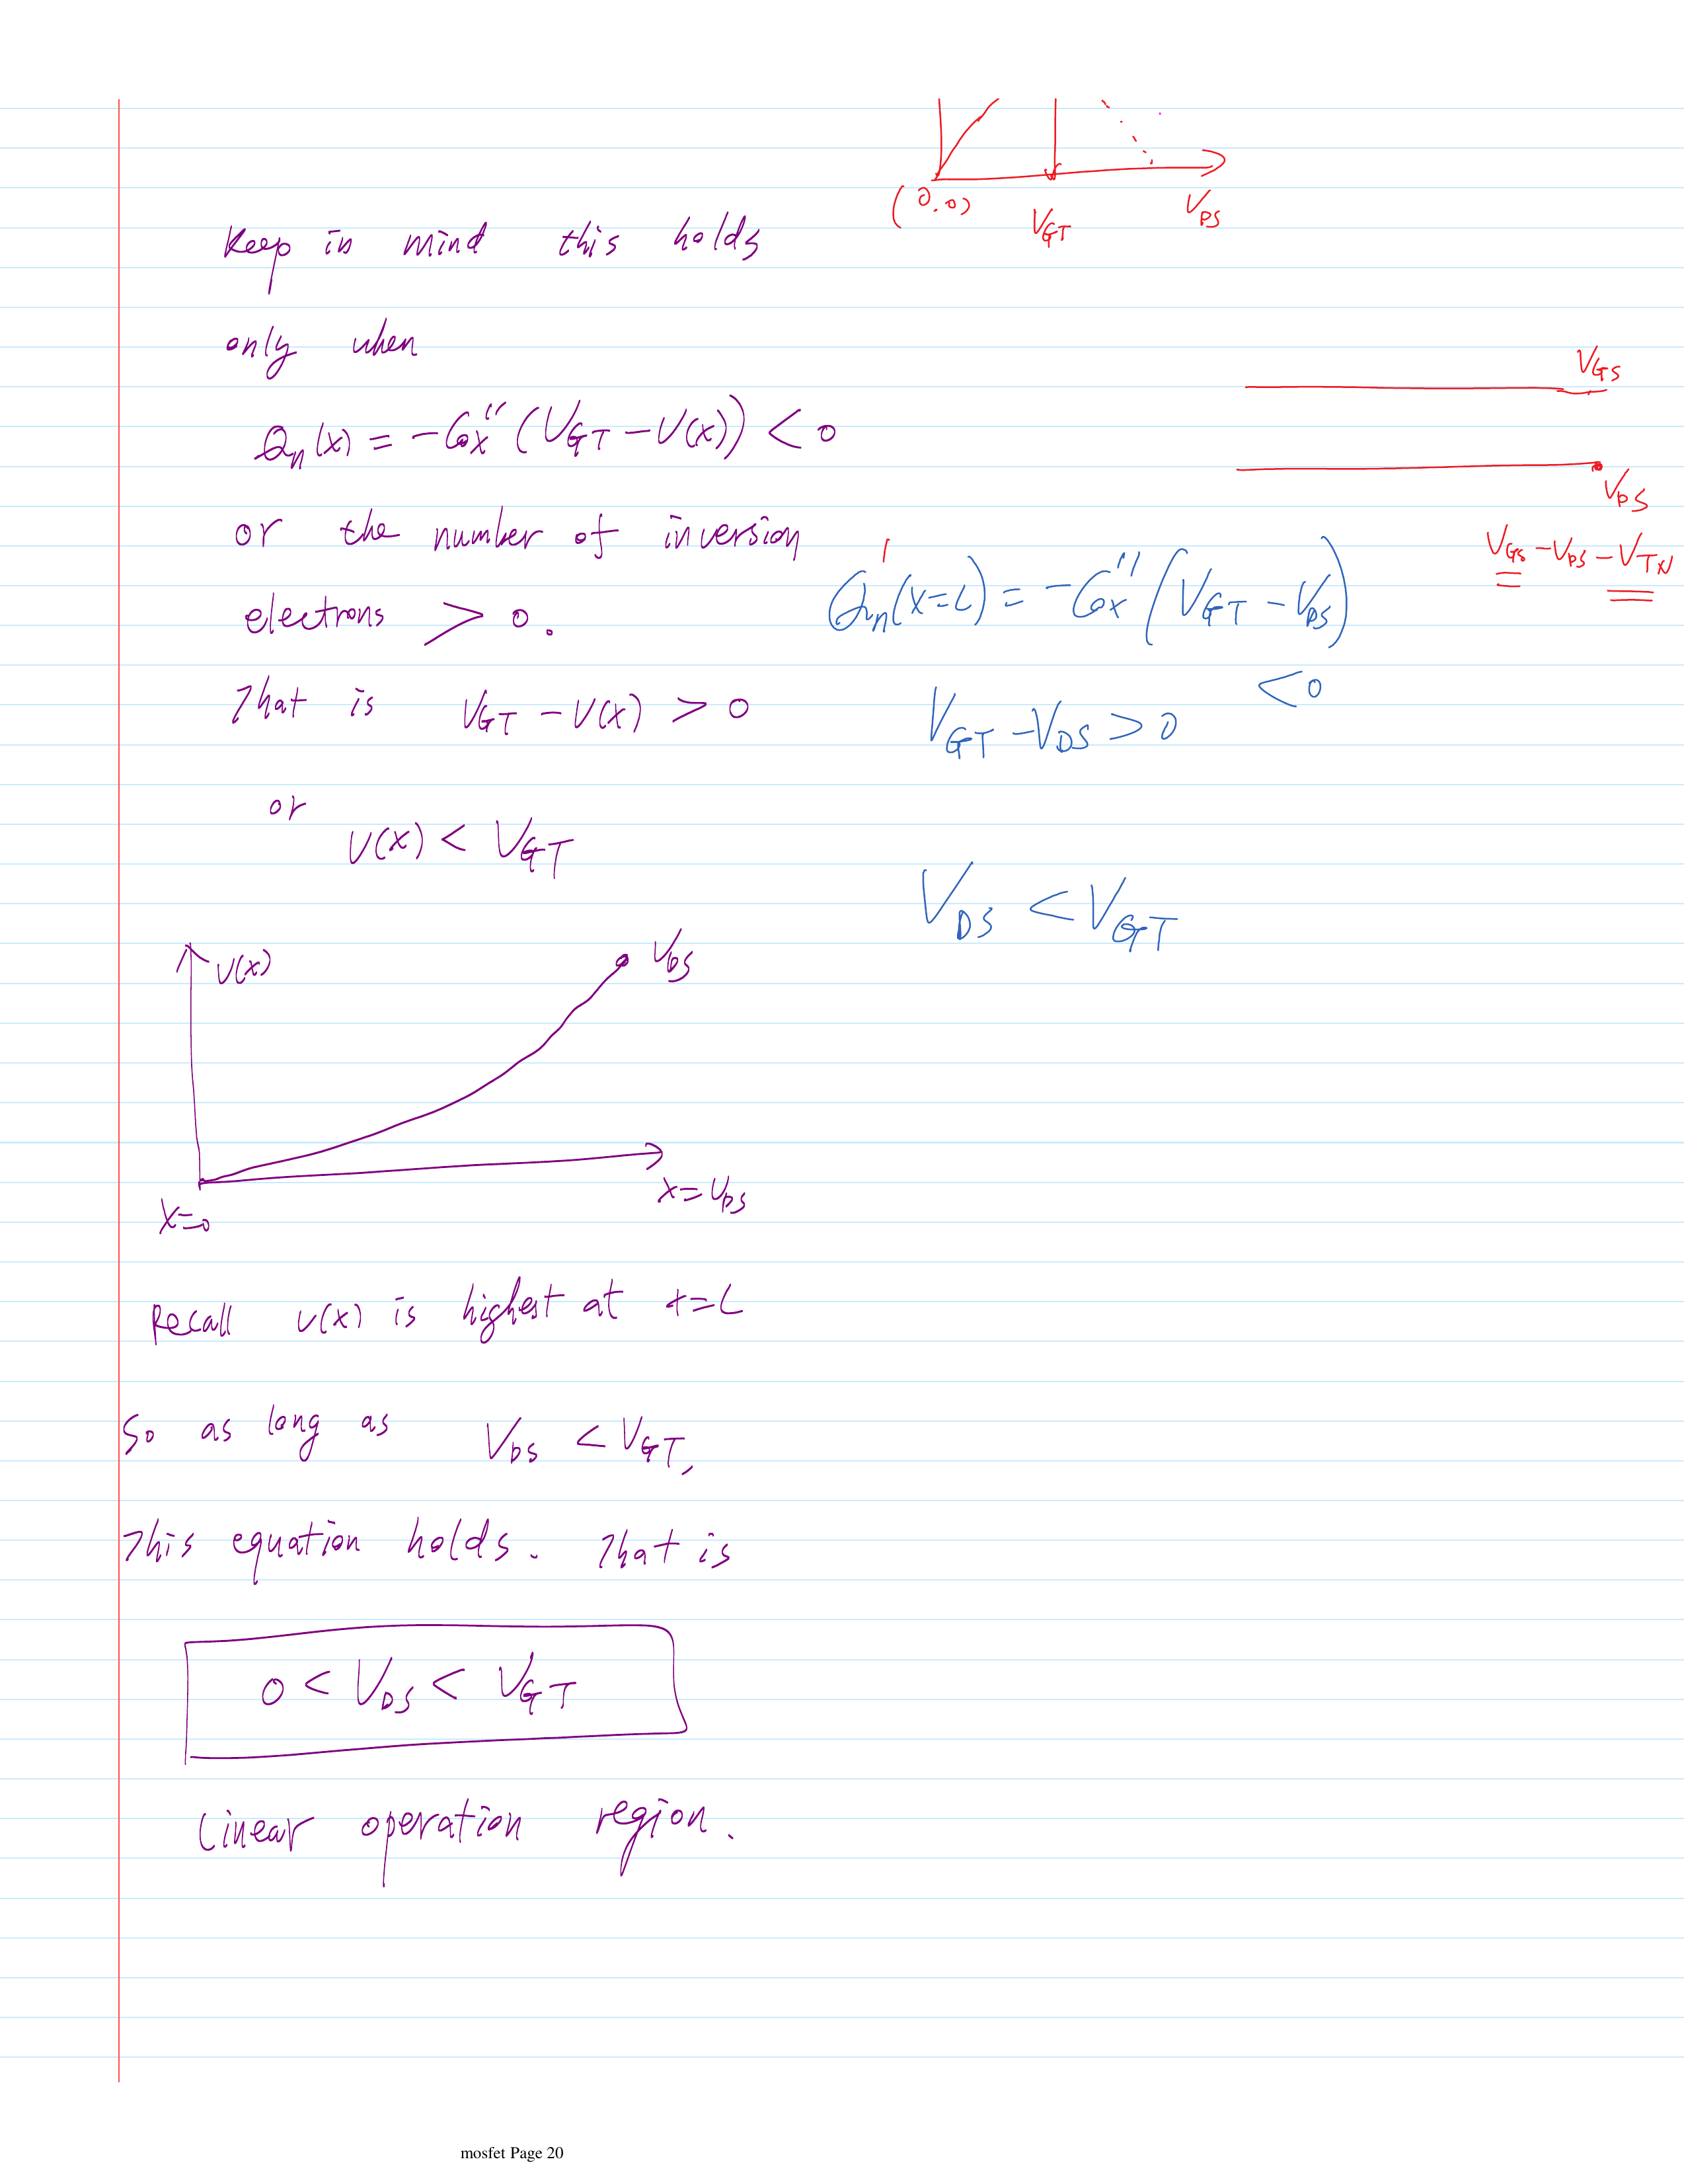 (0,0)
V_GT
V_DS
Keep in mind this holds
only when
Q_n(x) = -C_ox'' (V_GT - V(x)) < 0
or the number of inversion
electrons > 0.
That is V_GT - V(x) > 0
or
V(x) < V_GT
V_GS
V_DS
V_GS - V_DS - V_TN
Q_n'(x=L) = -C_ox'' (V_GT - V_DS)
< 0
V_GT - V_DS > 0
V_DS < V_GT
V(x)
V_DS
x=0
x=V_DS
Recall V(x) is highest at x=L
So as long as V_DS < V_GT,
This equation holds. That is
0 < V_DS < V_GT
Linear operation region.
mosfet Page 20